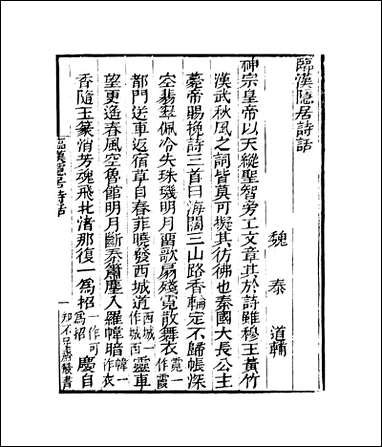 臨漢隱居詩話
魏泰 道輔
神宗皇帝以天縱聖智旁工文章其於詩雖穆王黃竹
漢武秋風之詞皆莫可擬其彷彿也秦國大長公主
薨帝賜挽詩三首曰海闊三山路香輪定不歸帳深
空翡翠佩冷失珠璣明月留歌扇殘霓散舞衣霓一作霞
都門送車返宿草自春菲曉發西城道西城一作城西靈車
望更遙春風空魯館明月斷秦簫塵入羅幃暗幃一作衣
香隨玉篆消芳魂飛北渚那復一為招一作可為招慶自
臨漢隱居詩話
一
知不足齋叢書